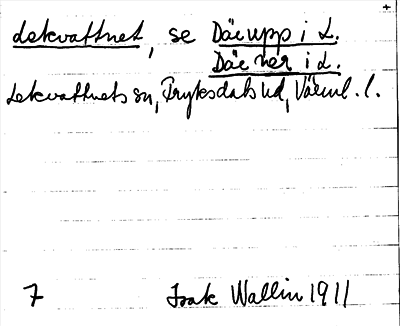 Lekvattnet, se Där upp i L.
Där ner i L.
Lekvattnets sn, Fryksdals hd, Värml. l.
7 Isak Wallin 1911